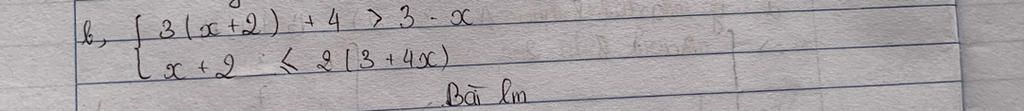 b, { 3(x+2) + 4 > 3 - x
x + 2 ≤ 2(3 + 4x)
Bài lm